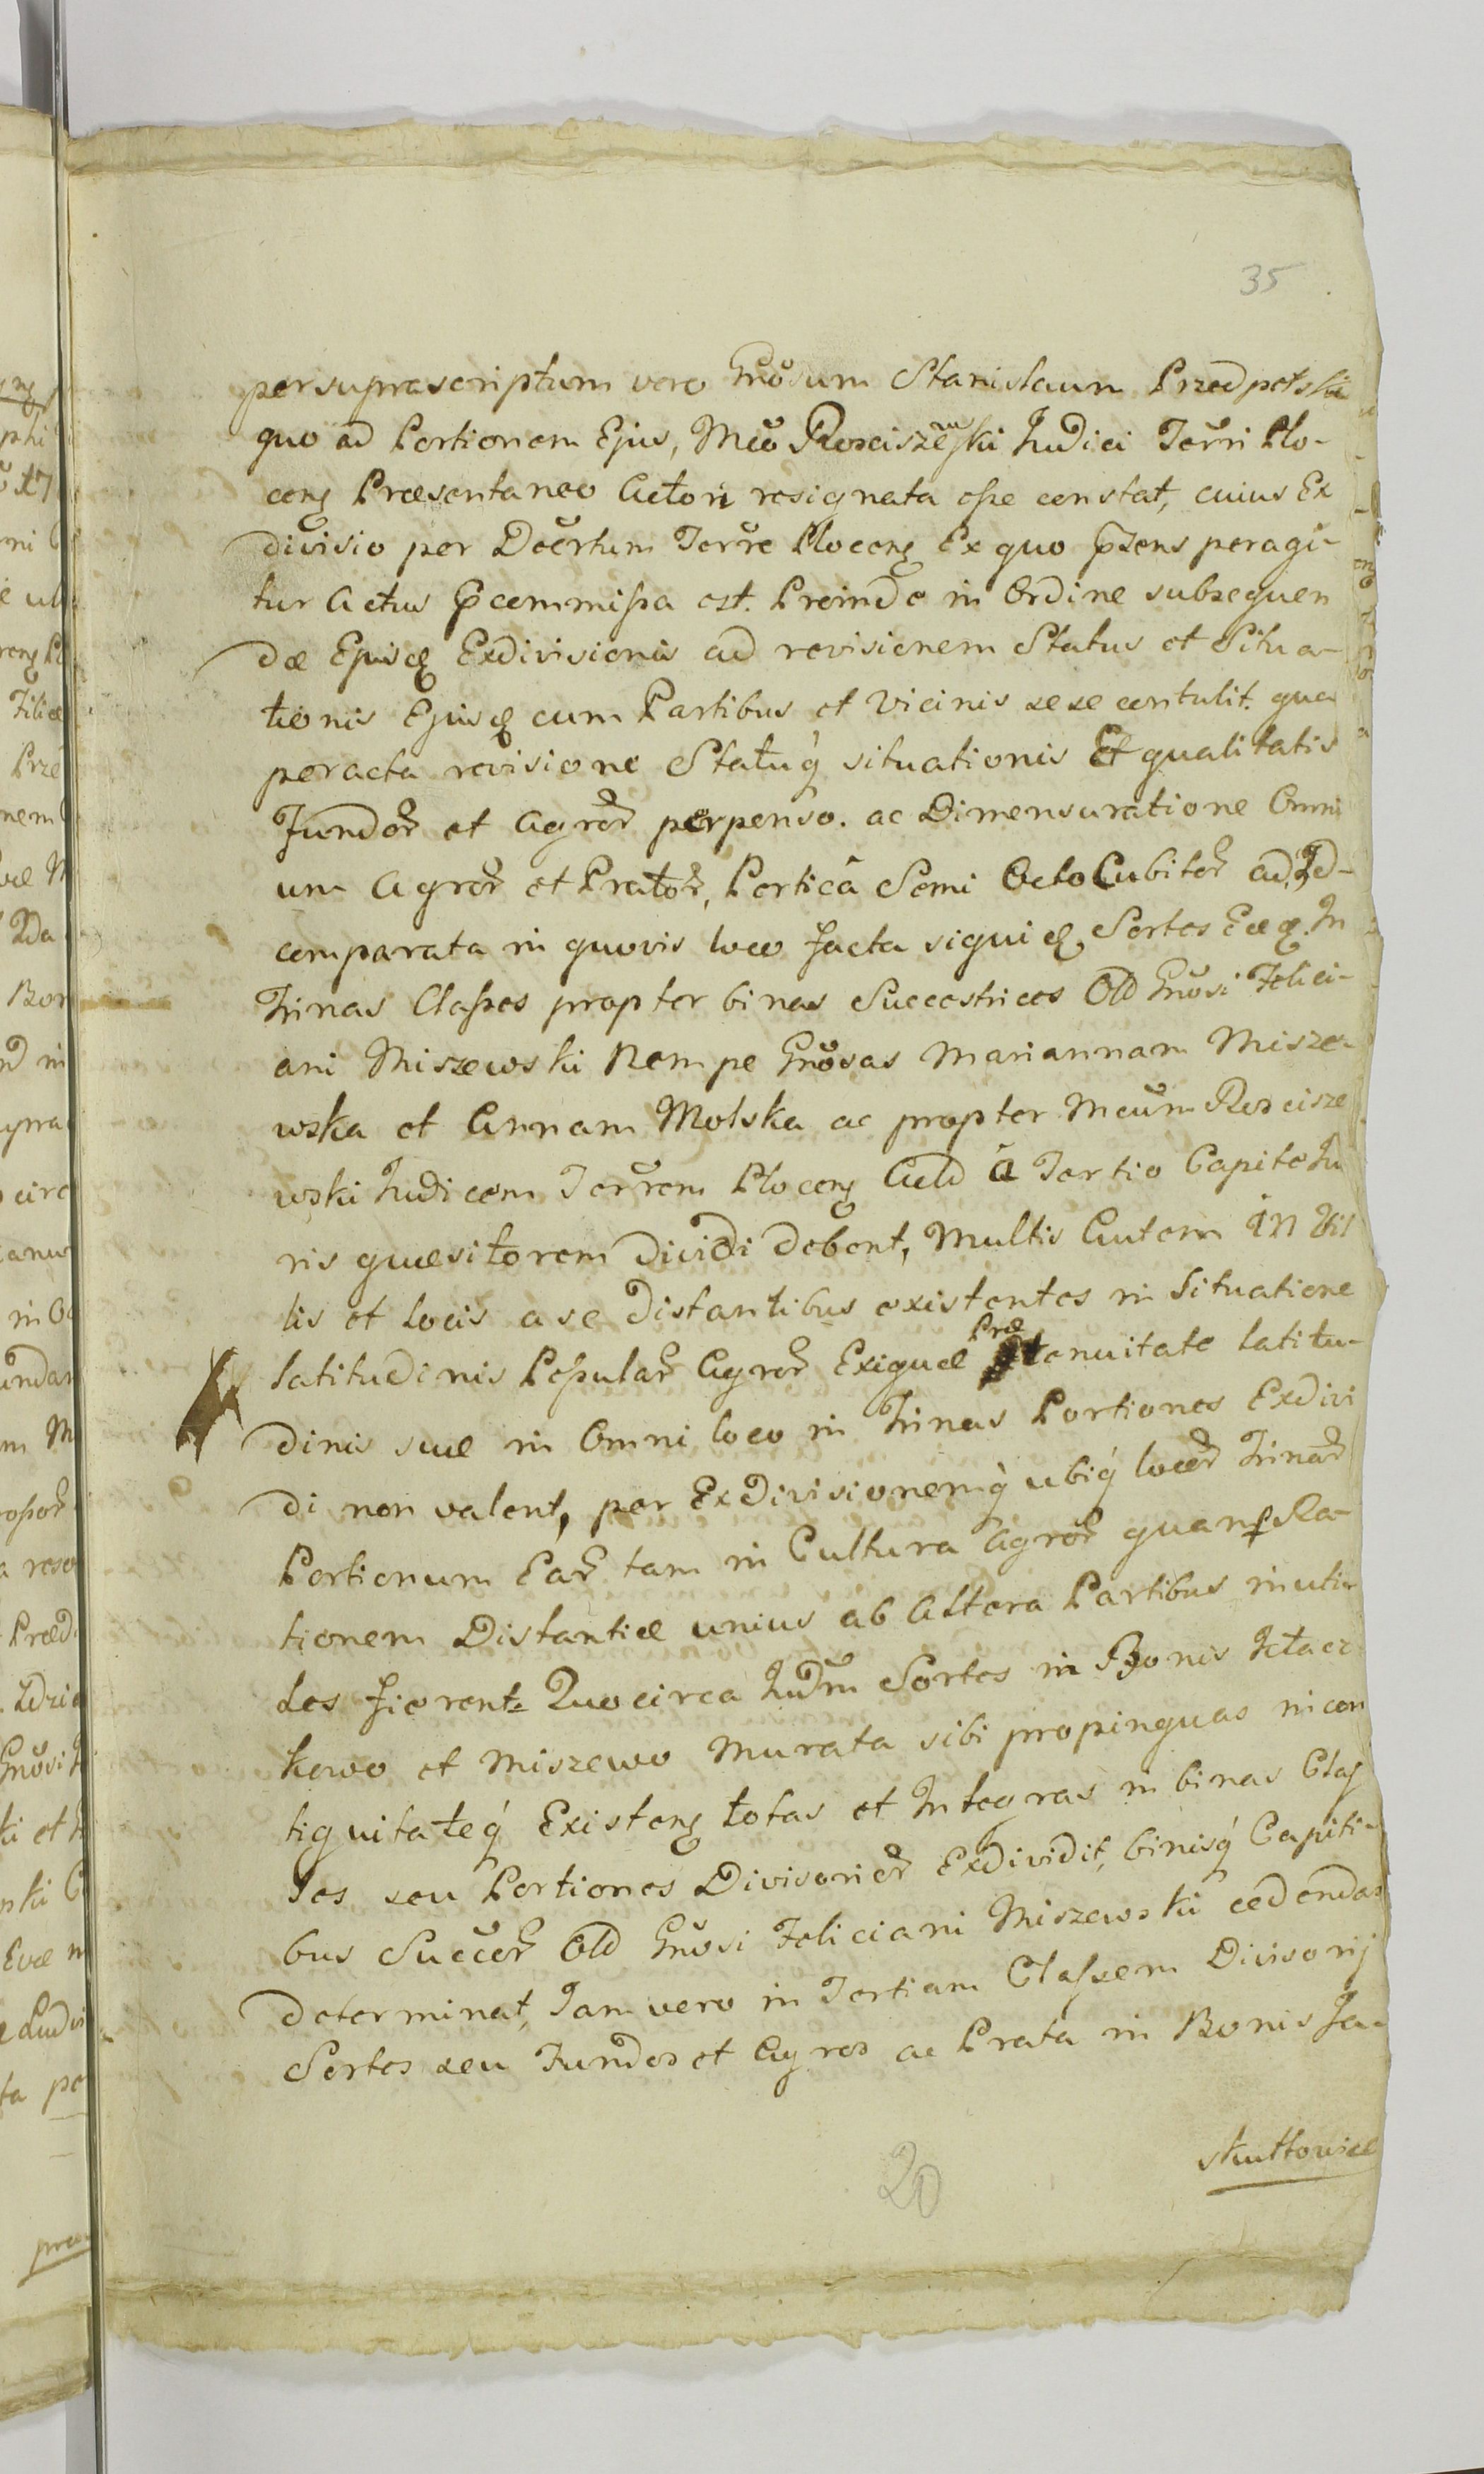 35
per suprascriptum vero Gnosum Stanislaum Przedpelski
quo ad Portionem Ejus, Mco Rosciszewski Judici Terri Plo-
ceng Præsentaneo Actori resignata esse constat, cuius Ex
divisio per Decrtum Terre Ploceng Ex quo pñsens peragi-
tur Actus commissa est. Proinde in Ordine subsequen
dæ Ejusq Exdivisionis ad revisionem Status et Situa-
tionis Ejusq cum Partibus et Vicinis sese contulit. qua
peracta revisione Statuq́ situationis Et qualitatis
Fundor et Agror perpenso. ac Dimensuratione Omni
um Agror et Prator, Perticâ Semi Octo Cubitor ad Id-
comparata in quovis loco facta siquiq Sortes Eæq. In
Trinas Classes propter binas Successtrices Old Gnosi Felici-
ani Miszewski Nempe Gnosas Mariannam Misze-
wska et Annam Molska ac propter Mcum Roscisze
wski Judicem Terrem Ploceng Ceŭ â Tertio Capite Ju
ris quæsitorem Dividi Debent, Multis Autem in Vil
lis et Locis a se Distantibus existentes in Situatione
latitudinis Pessular Agror Exiguæ Præ tenuitate latitu-
dinis suæ in Omni loco in Trinas Portiones Exdivi
di non valent, per Exdivisionemq́ ubiq́ locor Trinar
Portionum Ear tam in Cultura Agror quam p Ra-
tionem Distantiæ unius ab Altera Partibus inuti-
les fierent. Quocirca Judm Sortes in Bonis
kowo et Miszewo Murata sibi propinquas in con
tiguitateq́ Existeng totas et Integras in binas Clas
ses seu Portiones Divisorior Exdividit, binisq́ Capiti-
bus Succer Old Gnosi Feliciani Miszewski cedendas
determinat, Jam vero in Tertiam Classem Divisorij
Sortes seu Fundos et Agros ac Prata in Bonis Ja-
skułowice
20